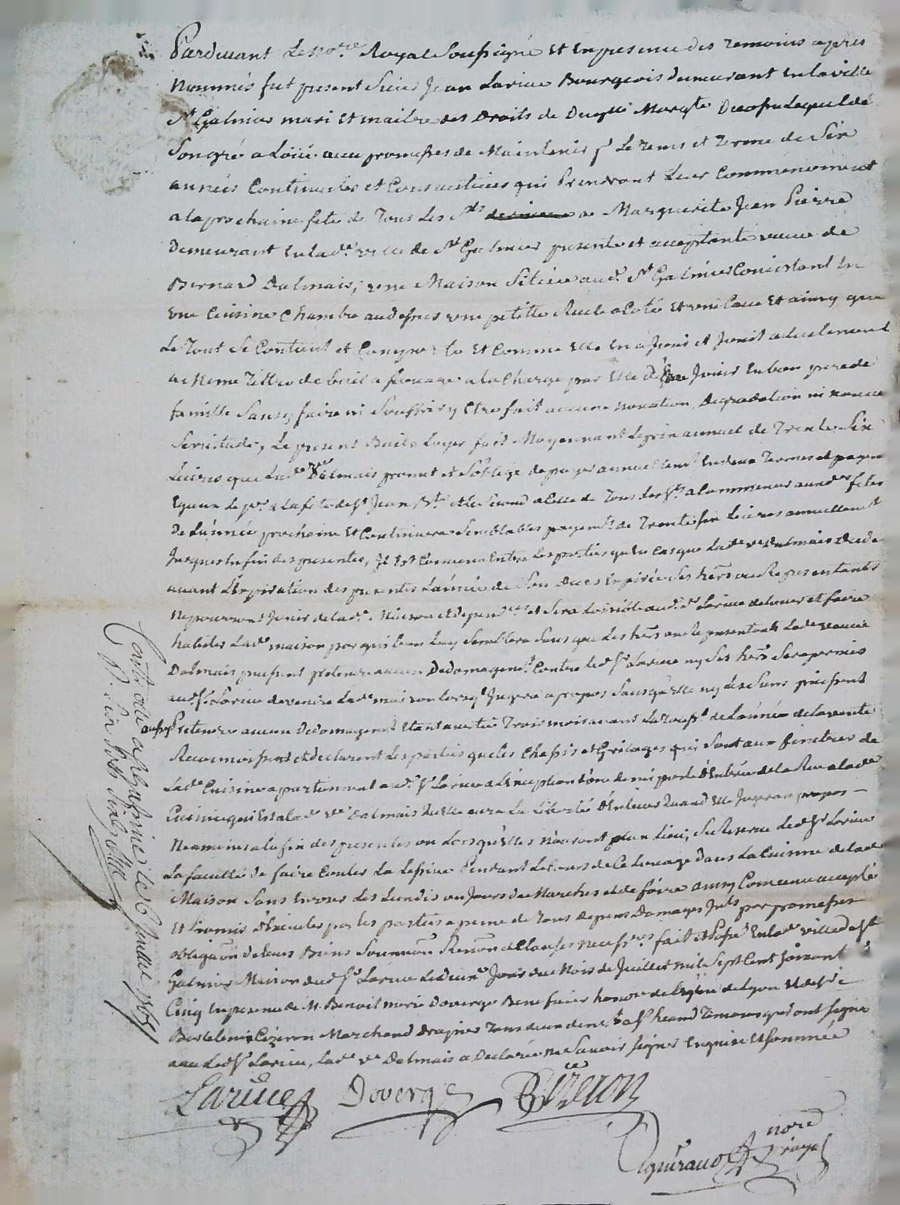 Pardevant Le nore Royal Soussigné Et En presence des temoins apres
nommés fut present Sieur Jean Larive Bourgeois demeurant En la ville
St Galmier mari Et maitre des Droits de Marg.te Lequel de
Son gré a Loüé avec promesses de Maintenir p.r Le tems et terme de Six
années Continuelles et Consecutives qui Prendront Leur Commencement
a la prochaine fete de Tous Les Sts a Marguerite Jean Pierre
Demeurant En lad.e ville de St Galmier presente et acceptante veuve de
Bernard Dalmais, une Maison Sitüée aud. St Galmier Consistant En
une Cuisine Chambre au dessus une petitte a Coté Et une Cave Et ainsy que
Le Tout Se Contient et Comporte Et Comme Elle En a Joüi et Joüit actuelement
a la Charge par Elle d'En Joüir En bon pere de
famille Sans y faire ni Souffrir y Etre fait aucune novation, Degradation ni nouvelle
Servitude, Le present Bail a Loyer fait Moyennant Le prix annuel de Trente Six
Livres que Lad.e v.ve Dalmais promet et S'oblige de payer annuellem.t En deux Termes et payem.
Egaux Le p.er a La fete de St Jean B.te et Le Second a Celle de Tous Les Sts a Commencer aux d.es fetes
De L'année prochaine Et Continuera Semblables payem.ts de Trente Six Livres annuellem.t
Jusques En fin des presentes, Il Est Convenu Entre Les parties qu'En Cas que Lad.e v.e Dalmais Decede
avant L'Expiration des presentes L'année de Son Deces Expirée Ses hers ou Representants
ne pourront Joüir de lad.e Maison et dependces et Sera Loisible aud. Sr Larive de Loüer et faire
habiter Lad.e maison par qui bon Luy Semblera Sans que Les hers ou Representants de Lad.e veuve
Dalmais puissent pretendre aucun Dedomagem.t Contre led. Sr Larive ny Ses hers Sera permis
aud. Sr Larive de vendre Lad.e maison Lorsq.l Jugera a propos Sans qu'Elle ny Les Siens puissent
pretendre aucun Dedomagement Etant avertie Trois mois avant La de L'année de La vente
Reconnoissent et declarent Les parties que Les Chassis et Grillages qui Sont aux fenetres de
Lad.e Cuisine apartiennent aud. Sr Larive a L'exception d'une demi porte d'Entrée de la Rue a lad.e
Cuisine qui Est a Lad.e v.ve Dalmais qu'elle aura La Liberté d'Enlever Quand Elle Jugera a propos
Neamoins a la fin des presentes ou Lorsqu'Elles n'auront plus Lieu, Se Reserve Led. Sr Larive
La faculté de faire Couler La Lessive Pendant Le Cours de Ce Loüage dans La Cuisine de lad.e
Maison Sans Les Lundis ou Jours de Marchés et de foire ainsy Convenu accepté
Et Promis d'Executer par Les parties a peine de Tous depens Domages Ints par promesses
obligaon de Leurs Biens Soumissons Renons et Clauses necessres fait et Passé En lad.e ville de St
Galmier Maison dud. Sr Larive Jour du Mois de Juillet mil Sept Cent Soixante
Cinq En presence de M. Benoit Marie Doverge de L'église de Lyon Et de Sr
Bartelemi Cizeron Marchand Drapier Tous deux demts a St Temoins qui ont Signé
avec Led. Sr Larive, Lad.e v.ve Dalmais a Declaré ne Savoir Signer Enquise Et Sommée
Larive Doverge Cizeron
nore
royal
Controllé a St Galmier Le 6 Juillet 1765